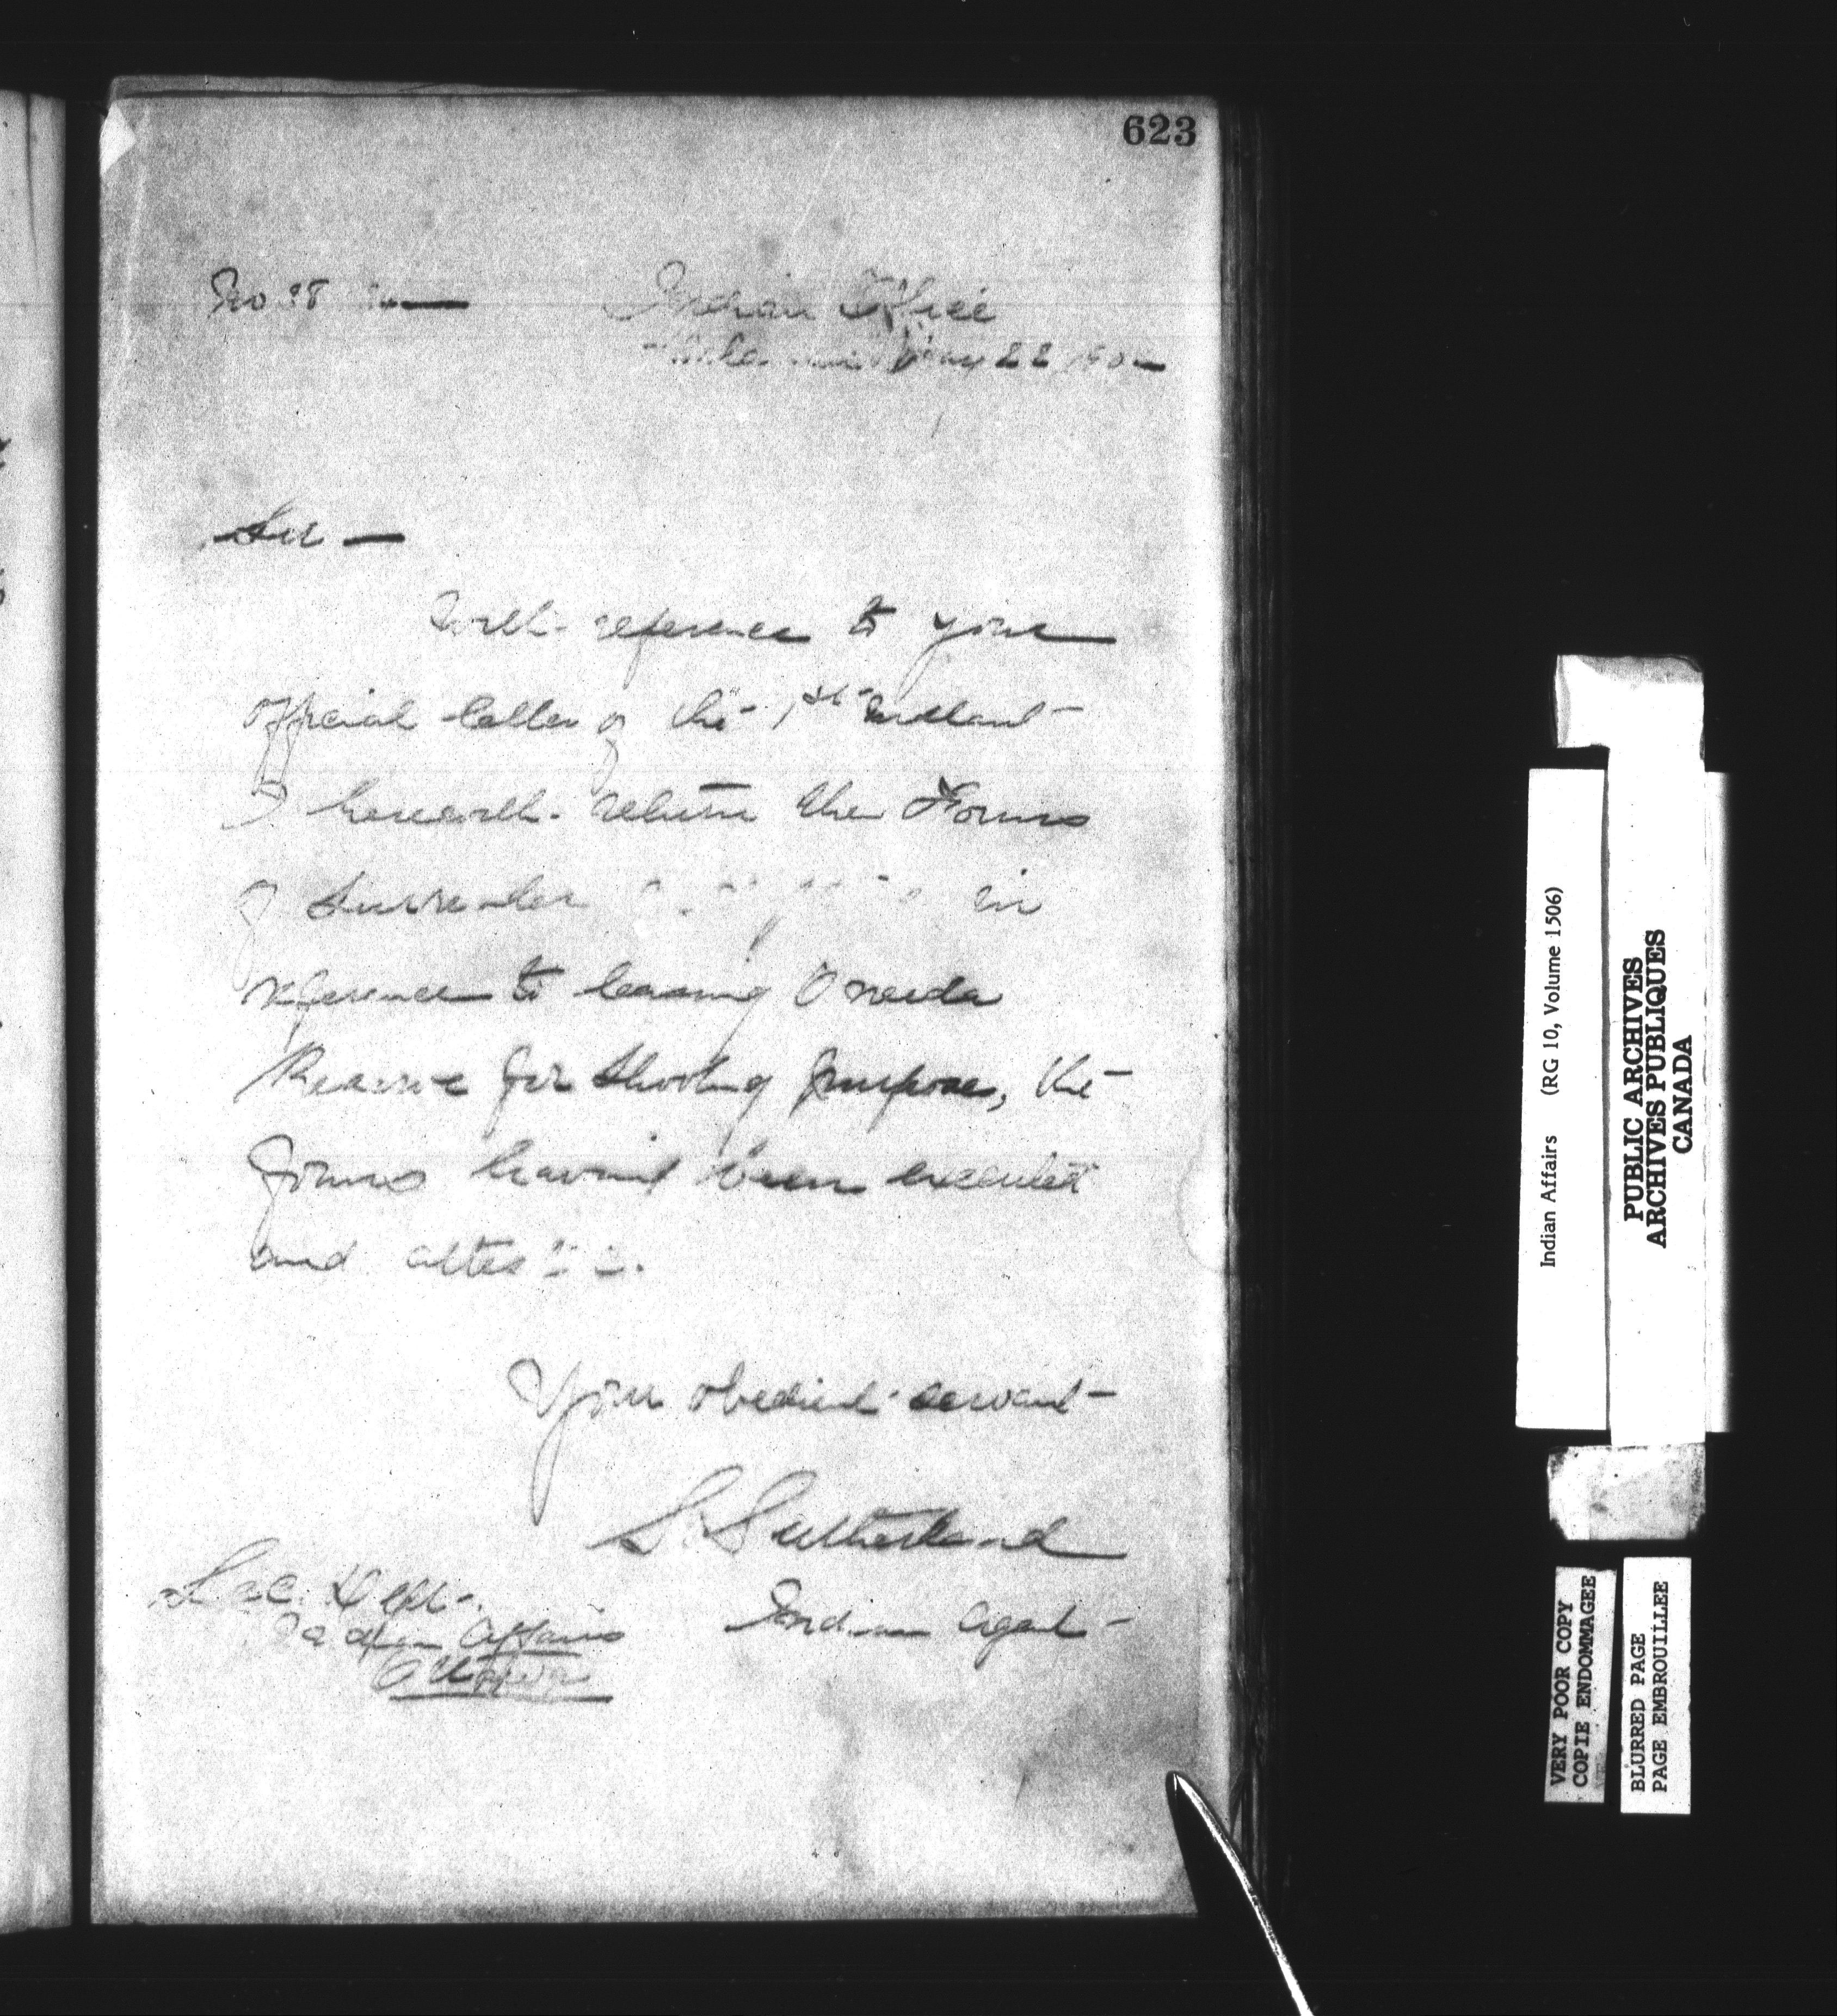 623
No 38
Indian Office
May 22 190
Sir —
With reference to your
official letter of the 1st Instant
I herewith return the Forms
of Surrender in
reference to leasing Oneida
Reserve for shooting purposes, the
forms having been executed
and attested.
Your obedient servant
S. Sutherland
Indian Agent
Sec. Dept.
Indian Affairs
Ottawa
Indian Affairs (RG 10, Volume 1506)
PUBLIC ARCHIVES
ARCHIVES PUBLIQUES
CANADA
VERY POOR COPY
COPIE ENDOMMAGEE
BLURRED PAGE
PAGE EMBROUILLEE